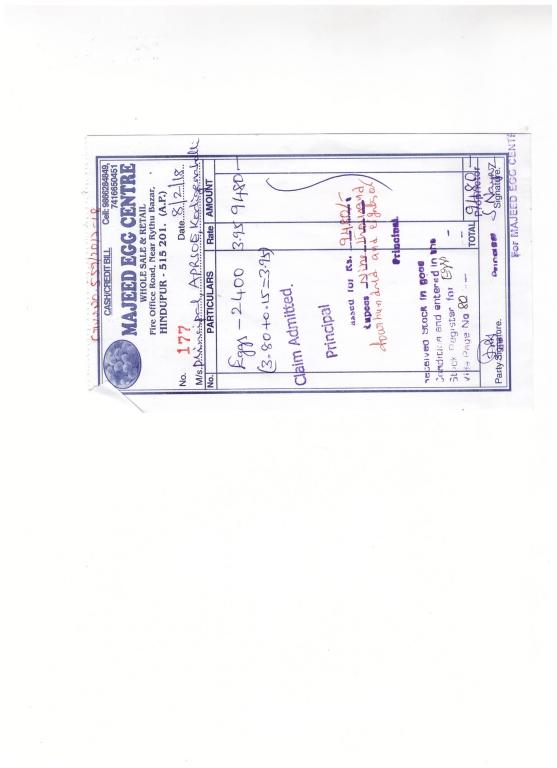 CASH/CREDIT BILL
Cell: 9866284849,
7416650451
MAJEED EGG CENTRE
WHOLE SALE & RETAIL
Fire Office Road, Near Rythu Bazar,
HINDUPUR - 515 201. (A.P.)
No. 177 Date 8/2/18
M/s. Principal APRJC
No. PARTICULARS Rate AMOUNT
Eggs - 2400 3.95 9480/-
(3.80+0.15=3.95)
Claim Admitted.
Principal
Passed for Rs. 9480/-
Rupees Nine thousand
four hundred and eighty
Principal
Received stock in good
Condition and entered in the
Stock Register for Egg
Vide Page No 80
TOTAL 9480/-
Party Signature. Signature.
For MAJEED EGG CENTRE